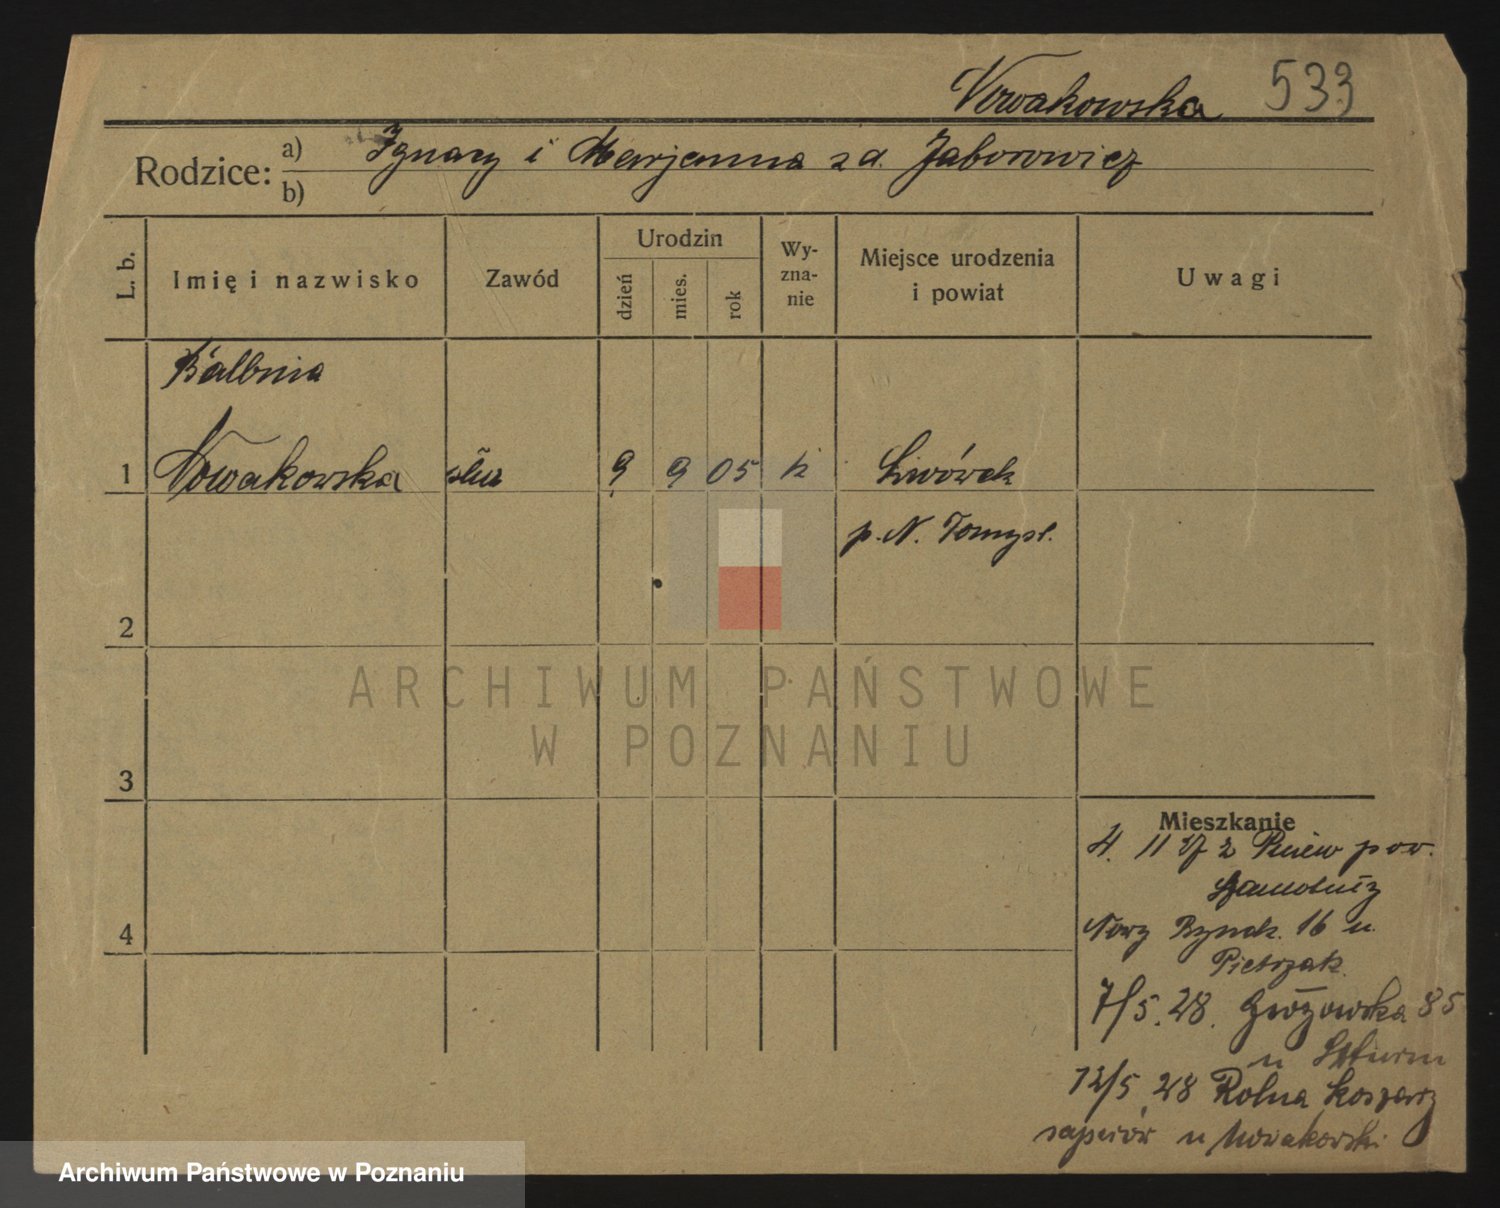 Nowakowska 533
Rodzice: a) Ignacy i Marjanna z d. Jaborowicz
b)
L. b. Imię i nazwisko Zawód Urodzin dzień mies. rok Wy-zna-nie Miejsce urodzenia i powiat Uwagi
Balbina
1 Nowakowska służ 9 9 05 k Lwówek
p. N. Tomyśl.
2
3
4
Mieszkanie
4. 11 27 z Pniew pow.
Szamotuły
Nowy Rynek 16 u
Pietrzak
7/5.28. Gwózowska 85
u Szturm
12/5 28 Rolna koszary
saperów u Nowakowski
ARCHIWUM PAŃSTWOWE
W POZNANIU
Archiwum Państwowe w Poznaniu